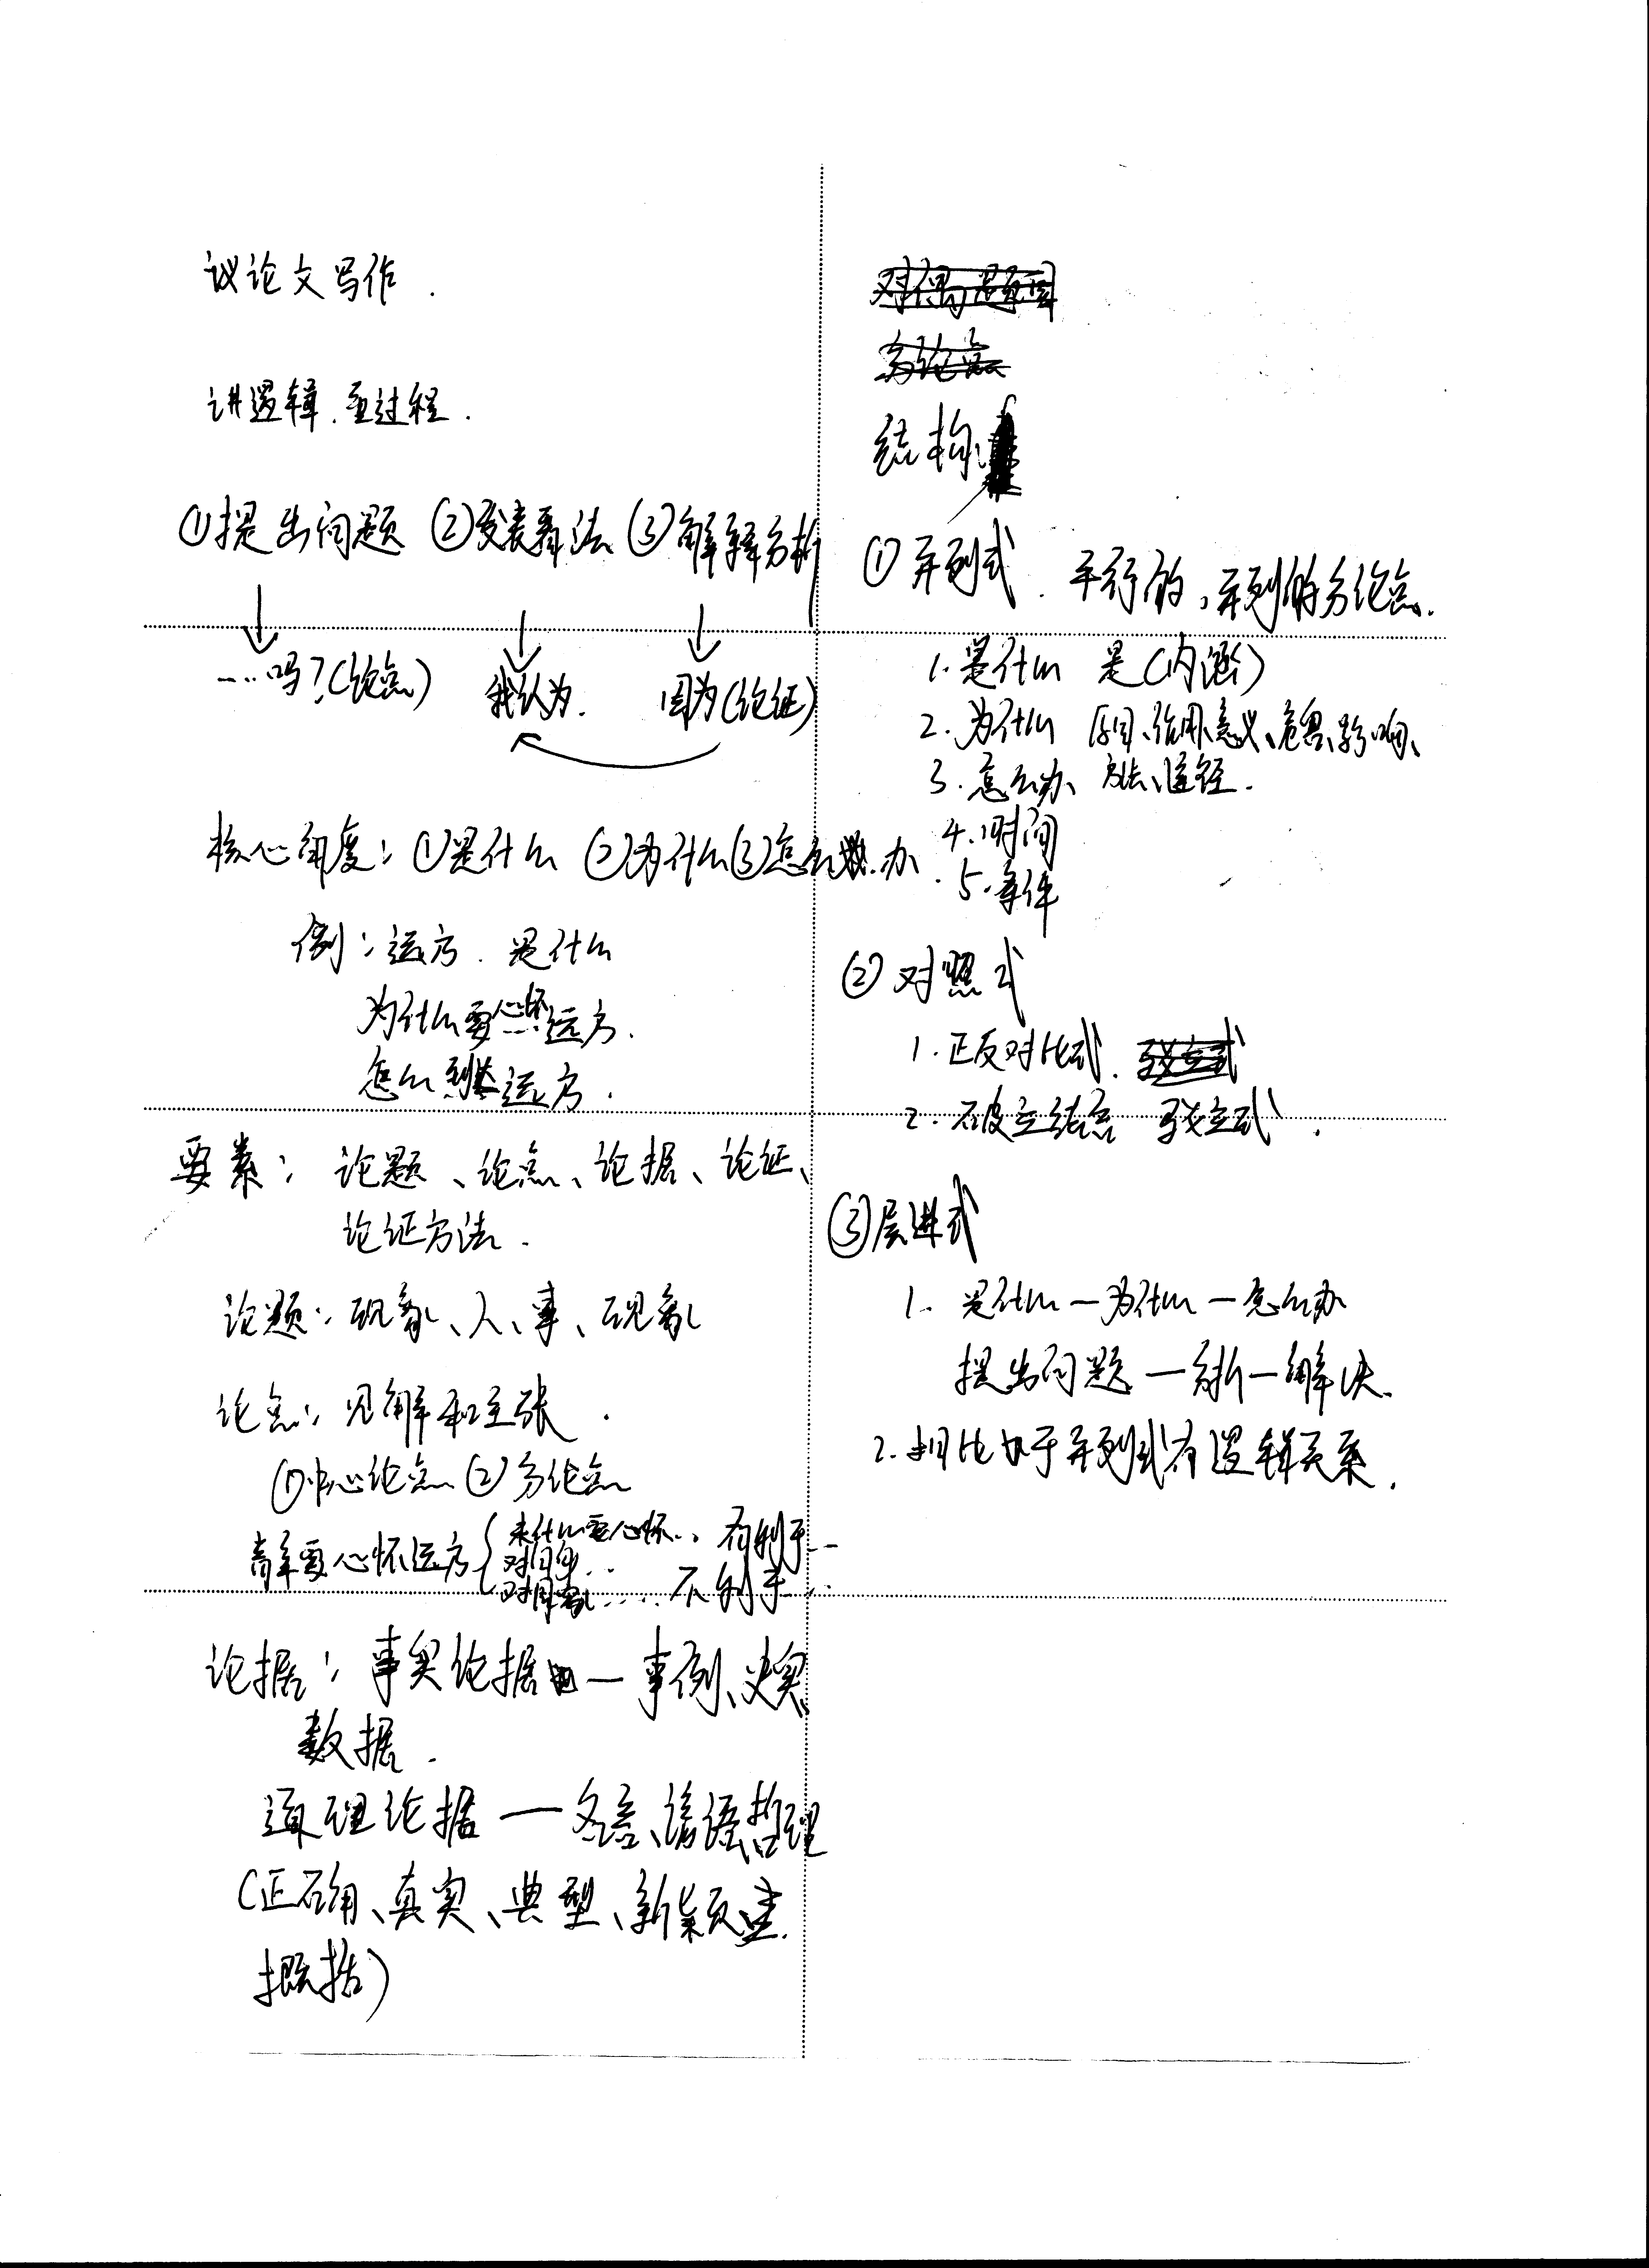 议论文写作.
讲逻辑.重过程.
①提出问题 ②发表看法 ③解释分析
……吗？(论点) 我认为. 因为(论证)
核心角度：①是什么 ②为什么 ③怎么办.
例：远方.是什么
为什么要心怀远方.
怎么到达远方.
要素：论题、论点、论据、论证、
论证方法.
论题：现象、人、事、现象
论点：见解和主张.
①中心论点 ②分论点
青年要心怀远方 为什么要心怀… 有利于…
对自身…
对国家…… 不利于…
论据：事实论据—事例、史实、
数据.
道理论据—名言、谚语、哲理
(正确、真实、典型、新颖
概括)
结构
①并列式.平行的，并列的分论点.
1.是什么 是(内涵)
2.为什么 原因、作用、意义、危害、影响、
3.怎么办、方法、途径.
4.时间
5.条件
②对照式
1.正反对比式.
2.破立结合 驳立式.
③层进式
1.是什么—为什么—怎么办
提出问题—分析—解决.
2.相比于并列式有逻辑关系.